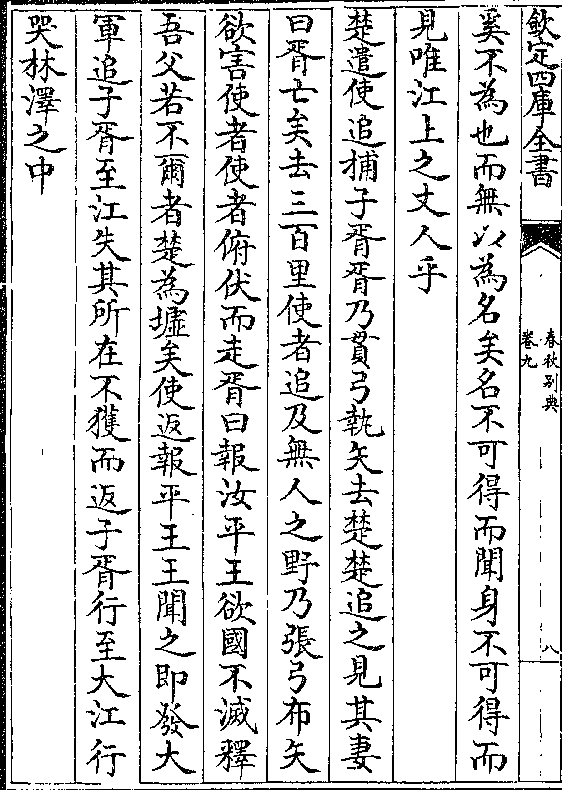 欽定四庫全書
春秋别典
卷九
八
奚不為也而無以為名矣名不可得而聞身不可得而
見唯江上之丈人乎
楚遣使追捕子胥胥乃貫弓執矢去楚楚追之見其妻
曰胥亡矣去三百里使者追及無人之野乃張弓布矢
欲害使者使者俯伏而走胥曰報汝平王欲國不滅釋
吾父若不爾者楚為墟矣使返報平王王聞之即發大
軍追子胥至江失其所在不獲而返子胥行至大江行
哭林澤之中